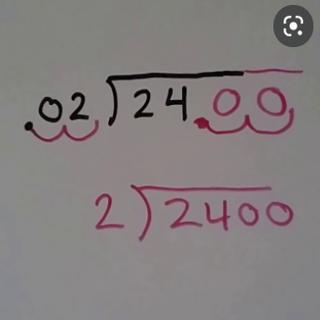 .02)24.00
2)2400